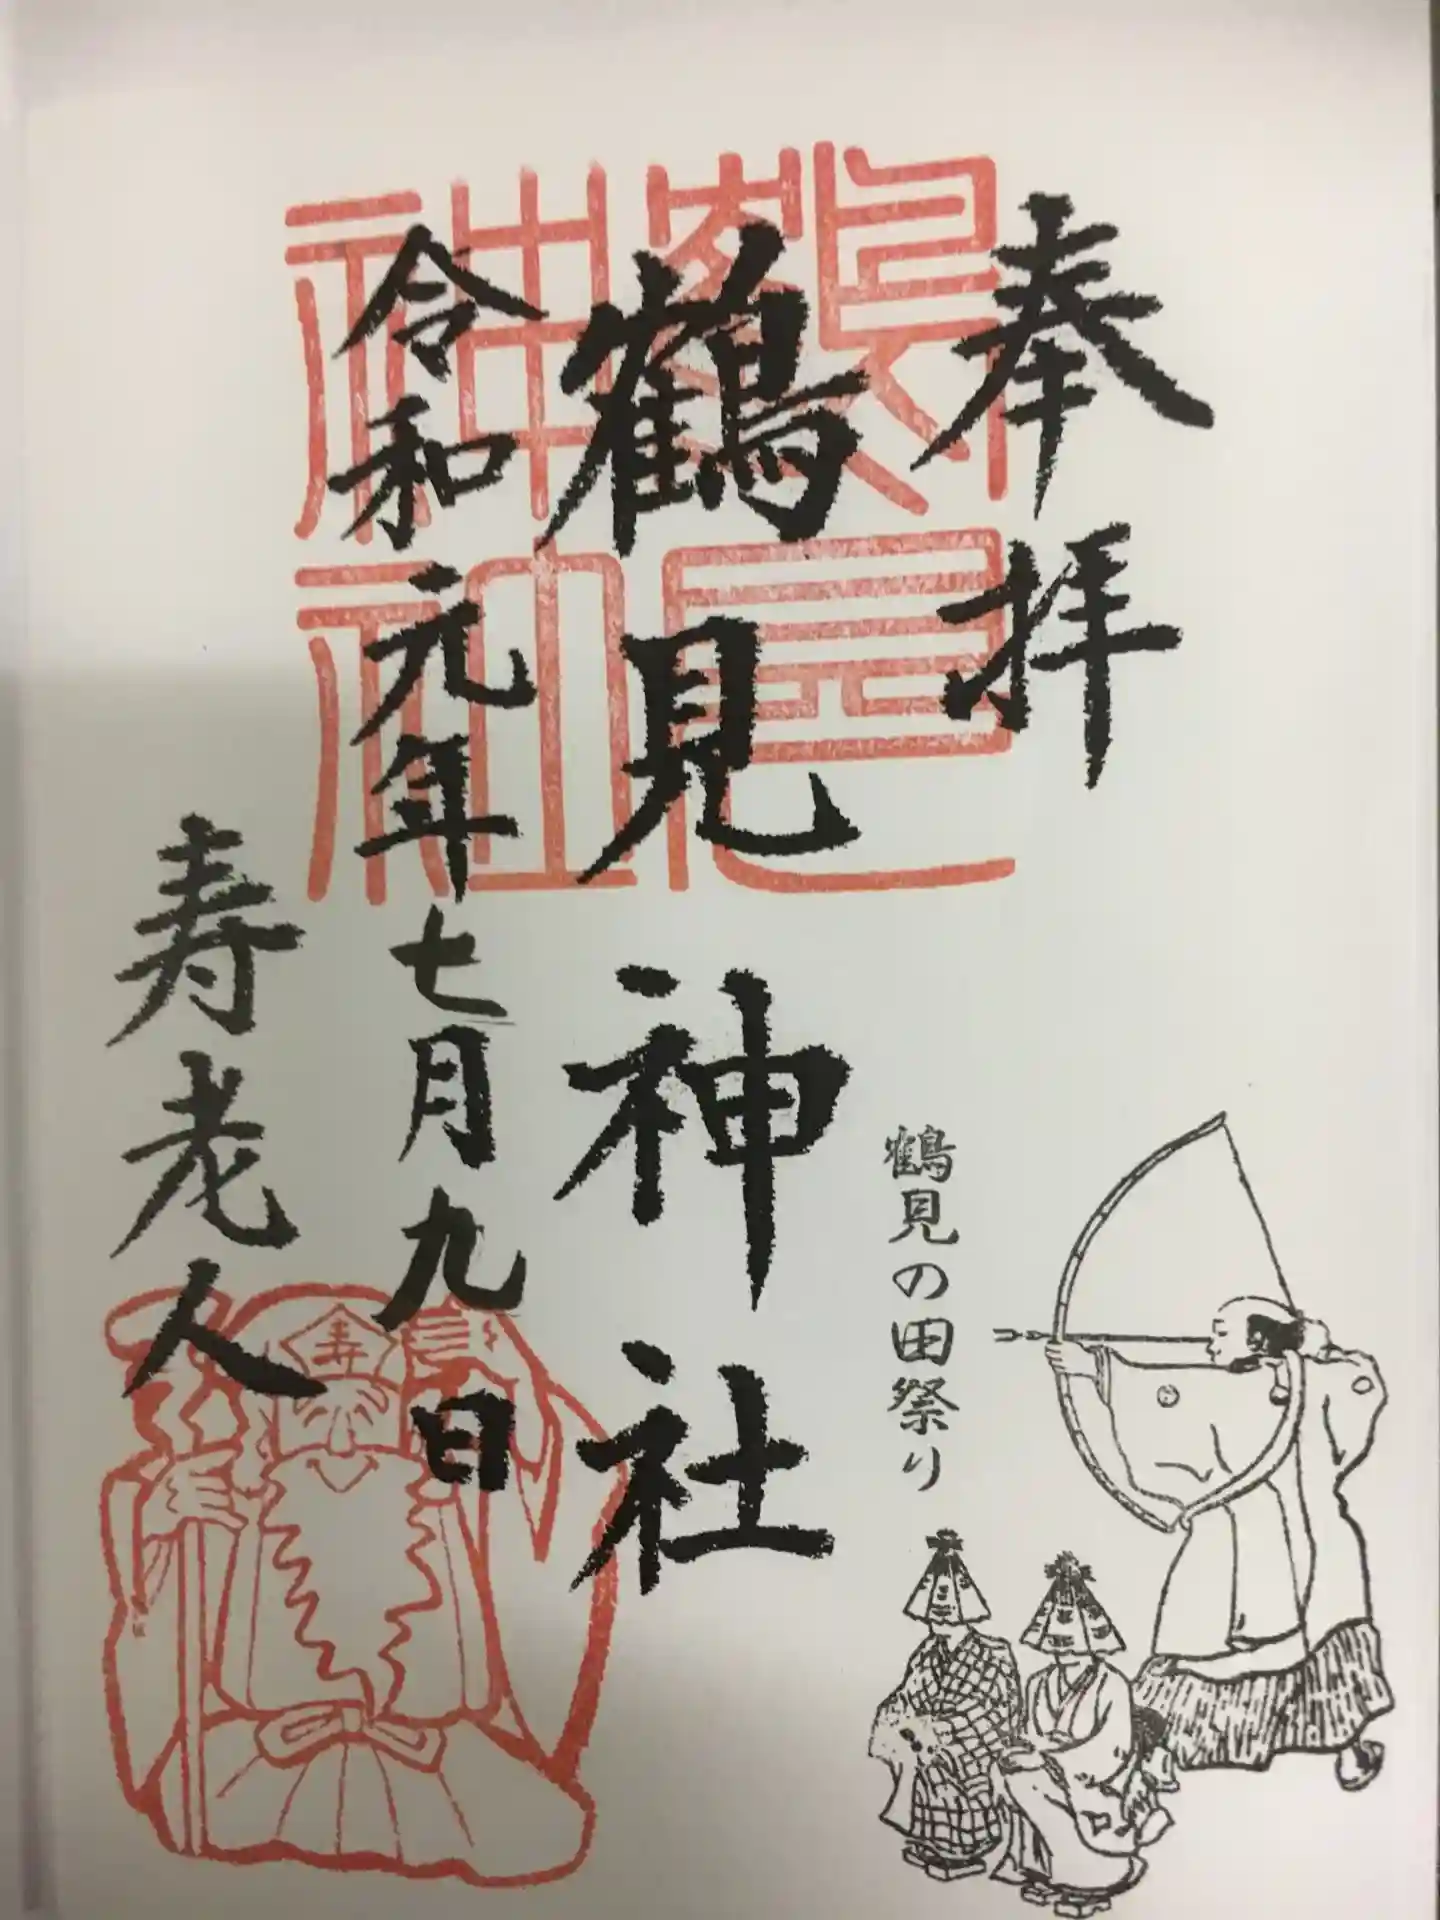 奉拝
鶴見神社
鶴見の田祭り
令和元年七月九日
寿老人
鶴見
神社
寿